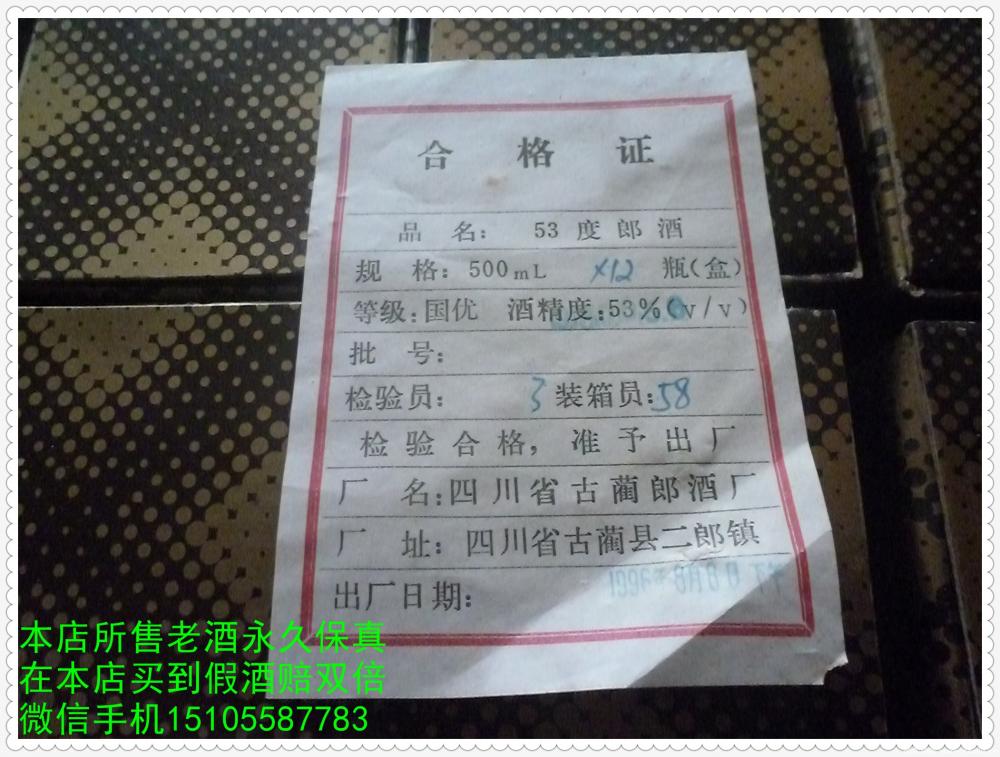 合格证
品名: 53度郎酒
规格: 500mL ×12 瓶(盒)
等级:国优 酒精度:53%(v/v)
批号:
检验员: 3 装箱员:58
检验合格,准予出厂
厂名:四川省古蔺郎酒厂
厂址: 四川省古蔺县二郎镇
出厂日期:
本店所售老酒永久保真
在本店买到假酒赔双倍
微信手机15105587783